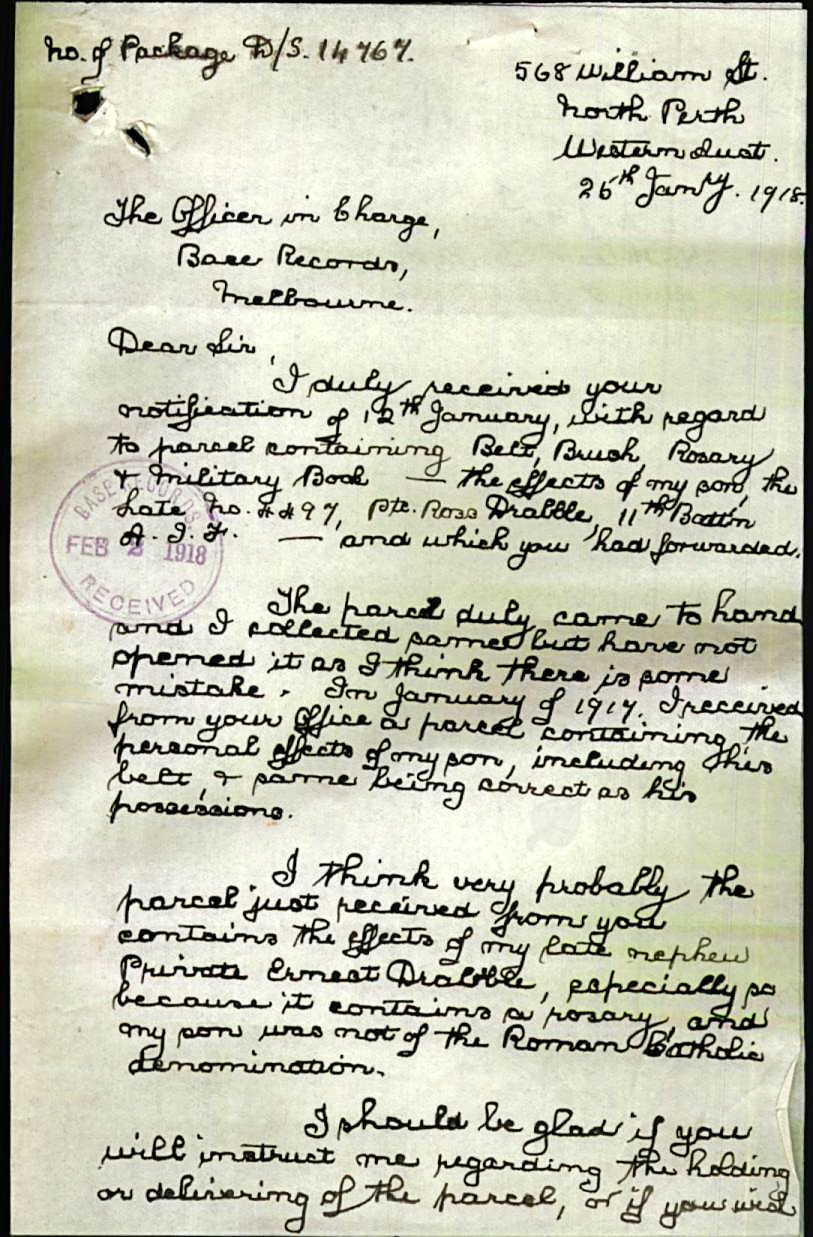 No. of Package D/S. 14767.
568 William St.
North Perth
Western Aust.
26th Jan'y. 1918.
The Officer in Charge,
Base Records,
Melbourne.
Dear Sir,
I duly received your
notification of 12th January, with regard
to parcel containing Belt, Brush, Rosary
& Military Book — the effects of my son, the
late No. 4497, Pte. Ross Drabble, 11th Battn
A. I. F. — and which you had forwarded.
BASE RECORDS
FEB 2 1918
RECEIVED
The parcel duly came to hand
and I collected same but have not
opened it as I think there is some
mistake. In January of 1917, I received
from your Office a parcel containing the
personal effects of my son, including his
belt, & same being correct as his
possessions.
I think very probably the
parcel just received from you
contains the effects of my late nephew
Private Ernest Drabble, especially so
because it contains a rosary, and
my son was not of the Roman Catholic
denomination.
I should be glad if you
will instruct me regarding the holding
or delivering of the parcel, or if you wish